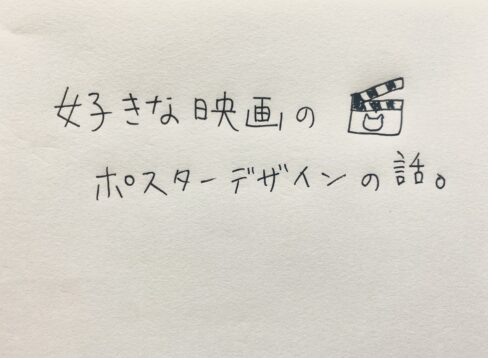 好きな映画の
ポスターデザインの話。